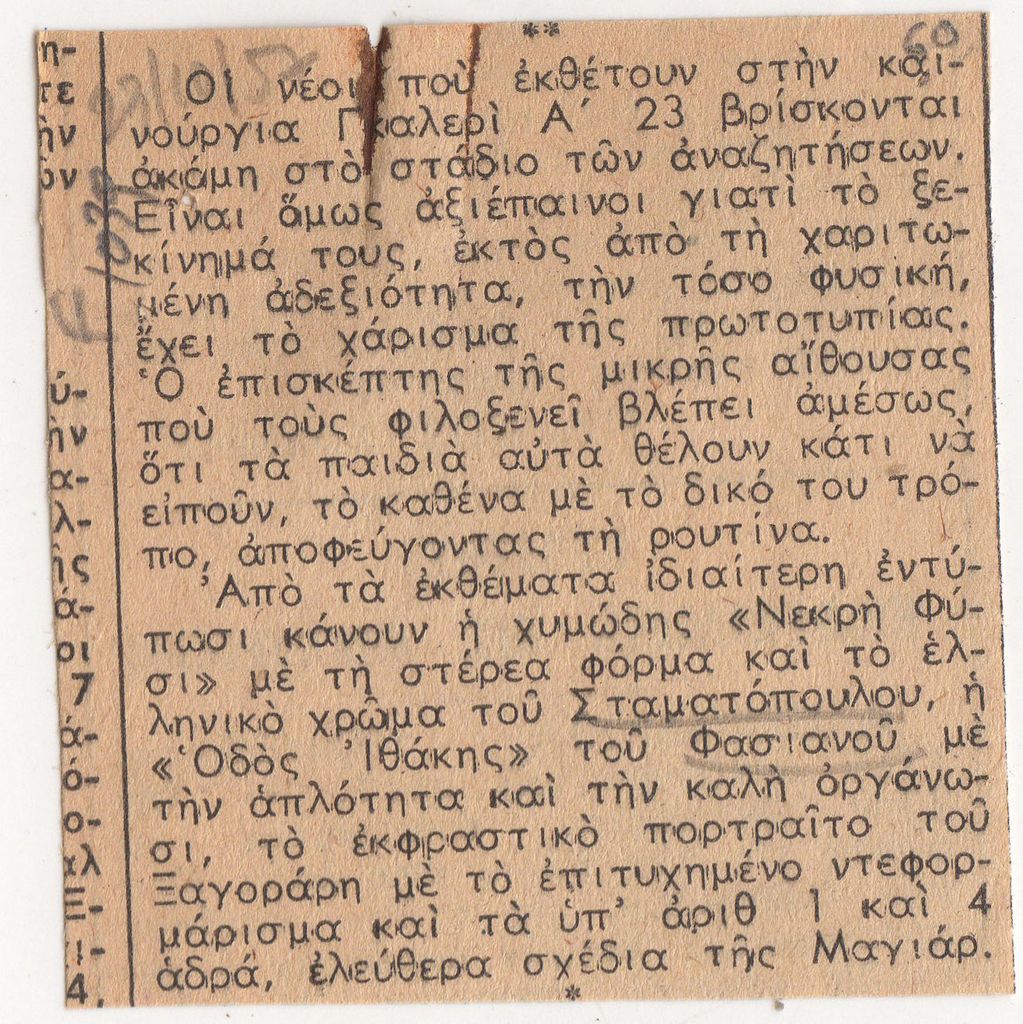 **
Οἱ νέοι ποὺ ἐκθέτουν στὴν και-
νούργια Γκαλερὶ Α΄ 23 βρίσκονται
ἀκόμη στὸ στάδιο τῶν ἀναζητήσεων.
Εἶναι ὅμως ἀξιέπαινοι γιατὶ τὸ ξε-
κίνημά τους, ἐκτὸς ἀπὸ τὴ χαριτω-
μένη ἀδεξιότητα, τὴν τόσο φυσική,
ἔχει τὸ χάρισμα τῆς πρωτοτυπίας.
Ὁ ἐπισκέπτης τῆς μικρῆς αἴθουσας
ποὺ τοὺς φιλοξενεῖ βλέπει ἀμέσως,
ὅτι τὰ παιδιὰ αὐτὰ θέλουν κάτι νὰ
εἰποῦν, τὸ καθένα μὲ τὸ δικό του τρό-
πο, ἀποφεύγοντας τὴ ρουτίνα.
Ἀπὸ τὰ ἐκθέματα ἰδιαίτερη ἐντύ-
πωσι κάνουν ἡ χυμώδης «Νεκρὴ Φύ-
σι» μὲ τὴ στέρεα φόρμα καὶ τὸ ἑλ-
ληνικὸ χρῶμα τοῦ Σταματόπουλου, ἡ
«Ὁδὸς Ἰθάκης» τοῦ Φασιανοῦ μὲ
τὴν ἁπλότητα καὶ τὴν καλὴ ὀργάνω-
σι, τὸ ἐκφραστικὸ πορτραῖτο τοῦ
Ξαγοράρη μὲ τὸ ἐπιτυχημένο ντεφορ-
μάρισμα καὶ τὰ ὑπ' ἀριθ 1 καὶ 4
ἁδρά, ἐλεύθερα σχέδια τῆς Μαγιάρ.
*
60